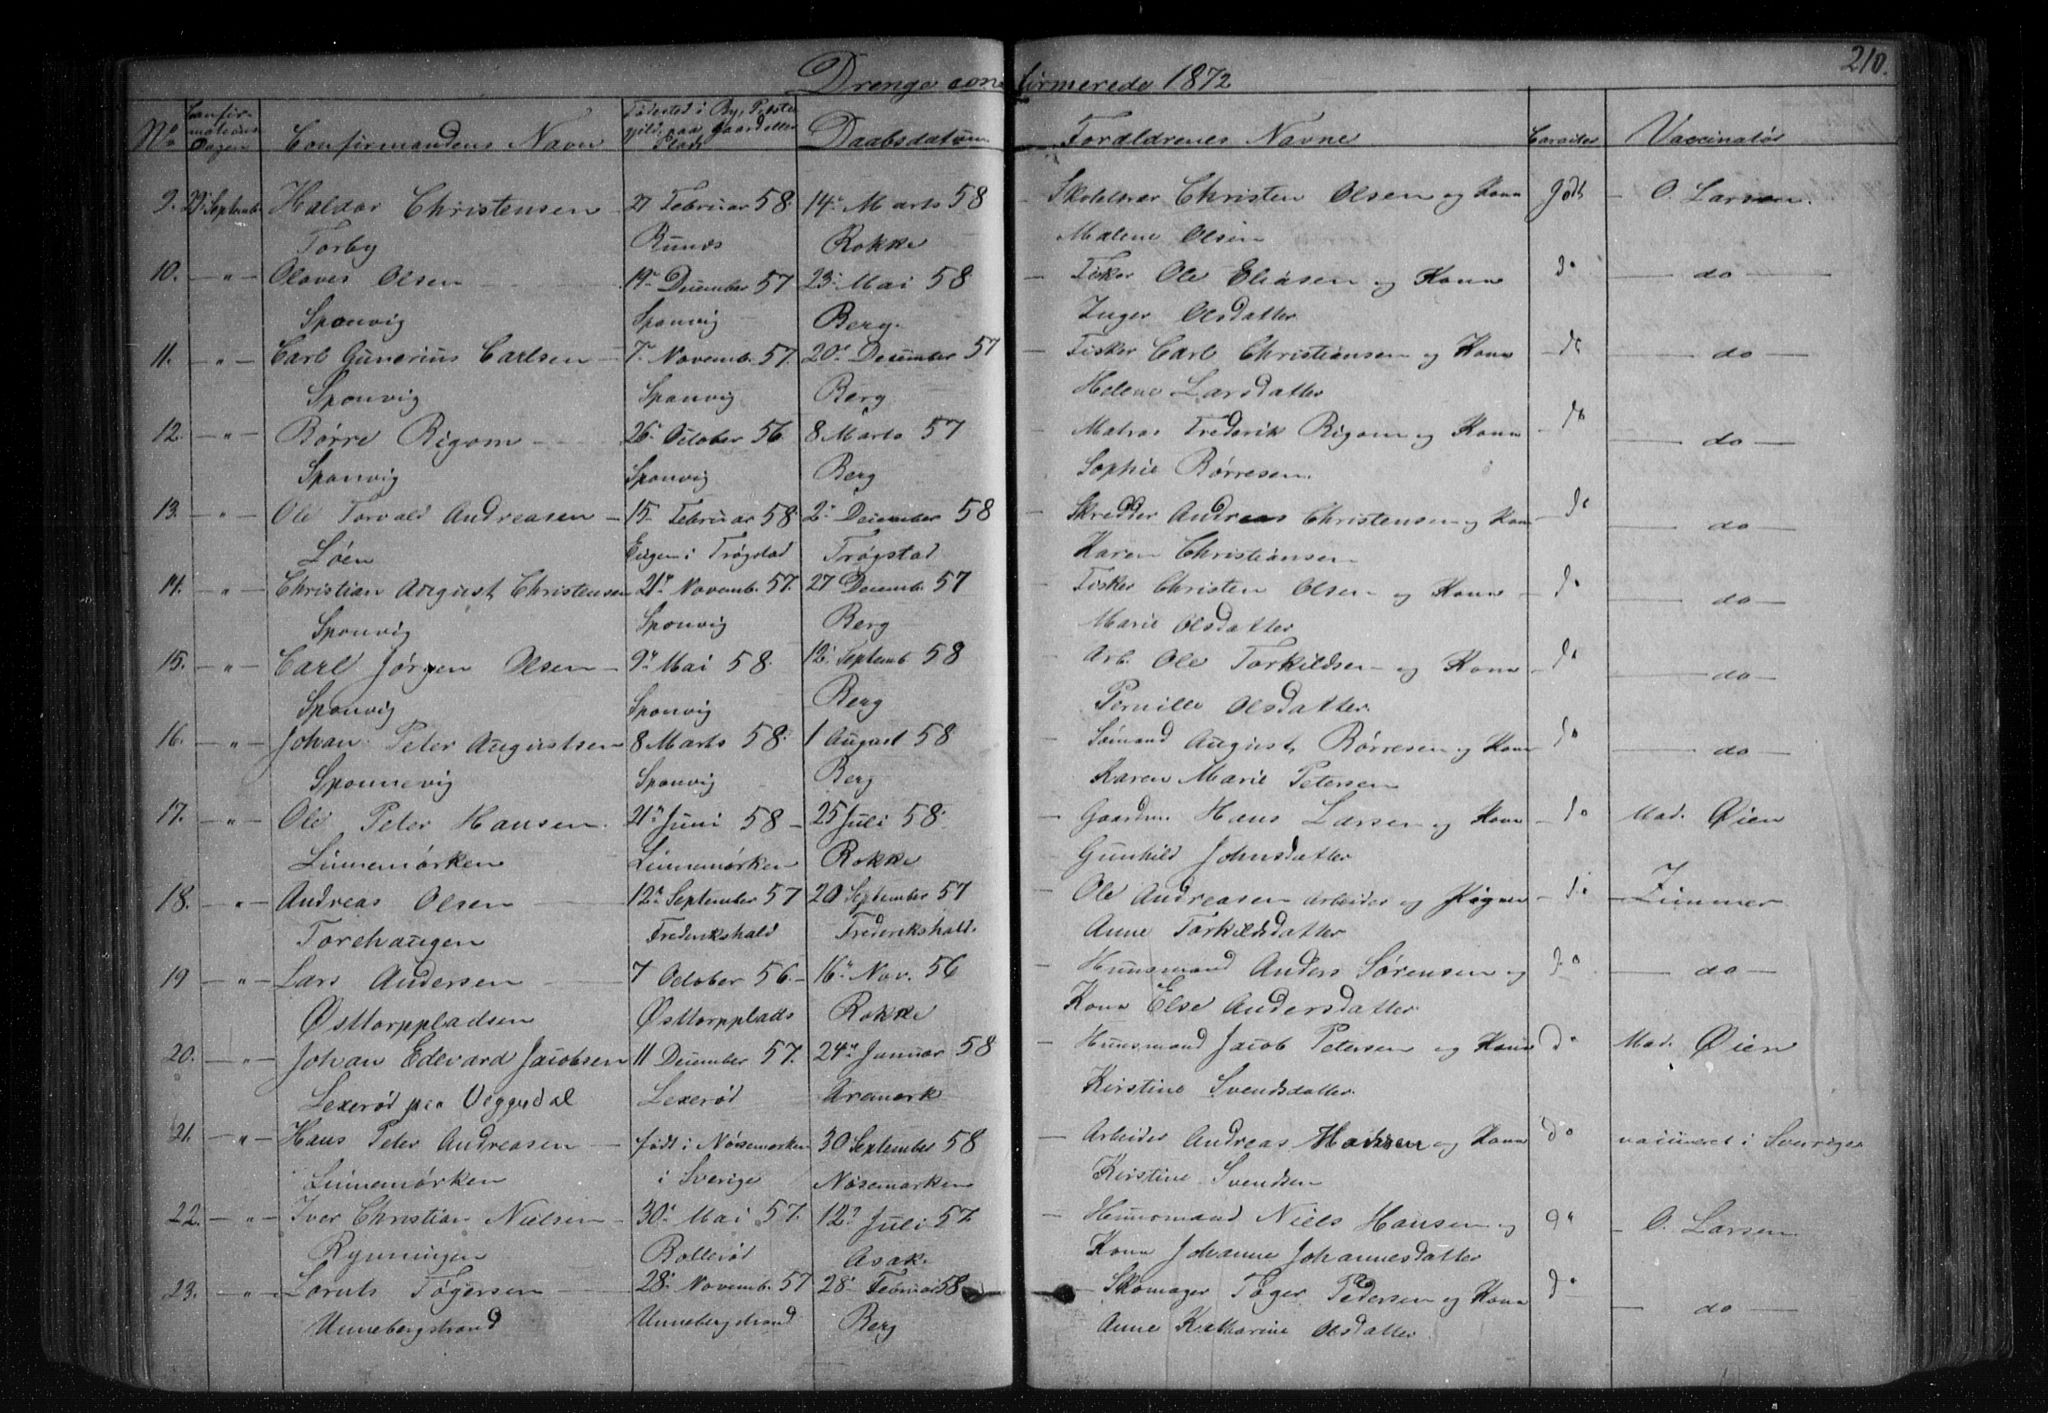 210.
Drenge confirmerede 1872
No Confirmations Dagen Confirmandens Navn Fødested i By, Præstegjeld, paa Gaard eller Plads Daabsdatum Forældrenes Navne Caracter Vaccinatør
9. 29 Septemb. Haldor Christensen 27 Februar 58. 14de Marts 58 Skolelærer Christen Olsen og Kone godt O. Larsen.
Torby Rokke Malene Olsen
10. — " — Olaves Olsen 19de December 57 23de Mai 58 Fisker Ole Eliasen og Kone do — do —
Sponvig Sponvig Berg. Inger Olsdatter
11. — " — Carl Gunerius Carlsen 7de Novemb. 57. 20de December 57 Fisker Carl Christiansen og Kone do — do —
Sponvig Sponvig Berg Helene Larsdatter
12. — " — Børre Bigom 26de October 56. 8 Marts 57 Matros Frederik Bigom og Kone do — do —
Sponvig Sponvig Berg Sophie Børresen.
13. — " — Ole Torvald Andreasen 15 Februar 58 2de December 58 Skredder Andreas Christensen og Kone do — do —
Løen i Trøgstad Trøgstad Karen Christiansen
14. — " — Christian August Christensen 21de Novemb. 57. 27 Decemb. 57 Fisker Christen Olsen og Kone do — do —
Sponvig Sponvig Berg Marie Olsdatter
15. — " — Carl Jørgen Olsen 9de Mai 58. 12de Septemb 58 Arb. Ole Torkildsen og Kone do — do —
Sponvig Sponvig Berg Pernille Olsdatter.
16. — " — Johan Peter Augustsen 8 Marts 58. 1 August 58 Sømand August Børresen og Kone do — do —
Sponnevig Sponvig Berg Karen Marie Petersen
17. — " — Ole Peter Hansen. 21de Juni 58 25 Juli 58. Gaardm. Hans Larsen og Kone do Mad. Øien
Linnemørken Linnemørken Rokke Gunhild Johnsdatter
18. — " — Andreas Olsen 12de September 57 20 September 57 Ole Andreasen Arbeider og Pigen do Zimmer
Torehaugen Frederikshald Frederikshald. Anne Torkildsdatter
19 — " — Lars Andersen 7 October 56 16de Nov. 56 Huusmand Anders Sørensen og do — do —
Østtorppladsen Østtorpplads Rokke Kone Else Andersdatter
20. — " — Johan Edevard Jacobsen 11 December 57. 24de Januar 58 Huusmand Jacob Petersen og Kone do Mad. Øien
Lexerød paa Viggedal Lexerød Aremark Kirstine Svendsdatter.
21. — " — Hans Peter Andreasen født i Nøsemarken 30 September 58 Arbeider Andreas Hansen og Kone do vaccineret i Sverige
Linnemørken i Sverige Nøsemarken Kirstine Svendsen
22. — " — Iver Christian Nielsen 30de Mai 57. 12te Juli 57 Huusmand Niels Hansen og do O. Larsen
Rynningen Bollerød Asak. Kone Johanne Johannesdatter
23. — " — Tøgersen 28de Novemb. 57 28de Februar 58 Skomager Tøger Pedersen og Kone do — do —
Unnebergstrand Unnebergstrand Berg Anne Katharine Olsdatter.